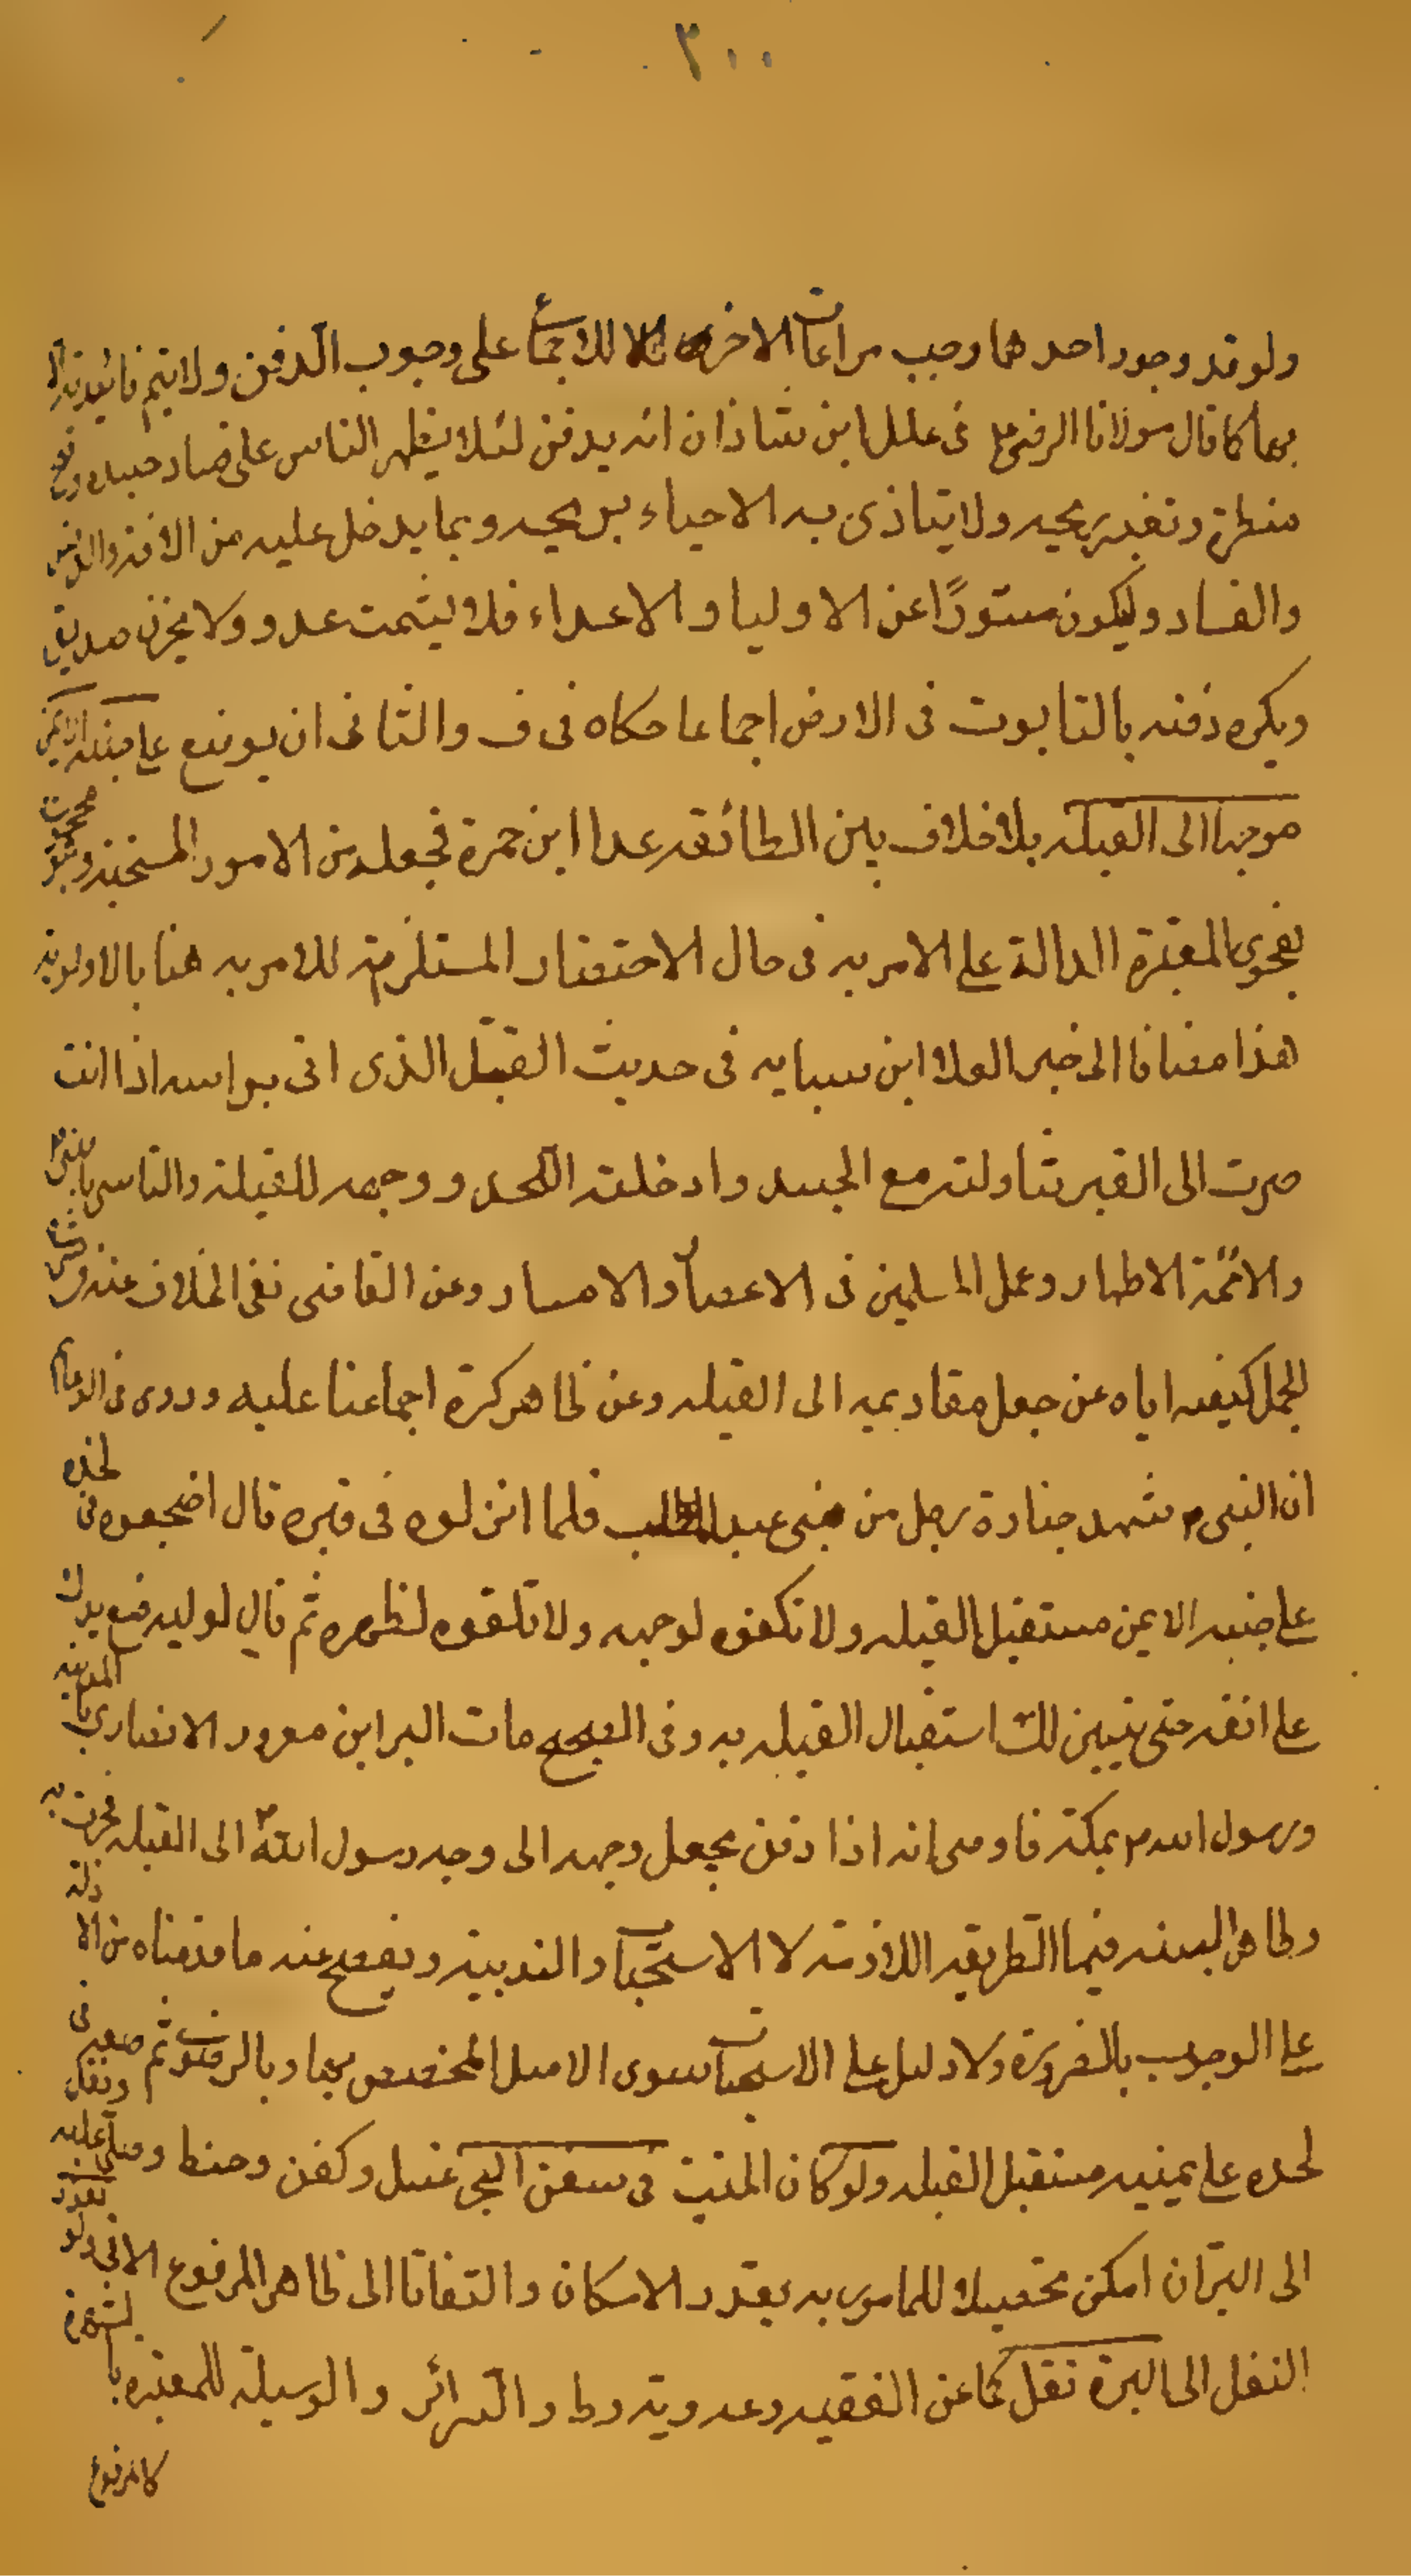 ٣٠٠
ولو قدر وجود احدهما وجب مراعات الاخر للاجماع على وجوب الدفن ولا يتم فائدته الا
بهما كما قال مولانا الرضا في علل ابن شاذان انه يدفن لئلا يظهر الناس على فساد جسده وقبح
منظره وتغير ريحه ولا يتاذى به الاحياء بريحه وبما يدخل عليه من الافة والدنس
والفساد وليكون مستورًا عن الاوليا والاعداء فلا يشمت عدو ولا يحزن صديق
ويكره دفنه بالتابوت في الارض اجماعا حكاه في ف والثاني ان يوضع على جنبه الايمن
موجها الى القبلة بلا خلاف بين الطائفه عدا ابن حمزة فجعله من الامور المستحبة وهو محجوج
بفحوى المعتبرة الدالة على الامر به في حال الاحتضار المستلزمة للامر به هنا بالاولوية
هذا مضافا الى خبر العلا ابن سيابه في حديث القتيل الذي اتى براسه اذا انت
صرت الى القبر تناولته مع الجسد وادخلته اللحد ووجهه للقبلة والتاسي بالنبي
والائمّة الاطهار وعمل المسلمين في الاعصار والامصار وعن القاضي نفى الخلاف عنه وشرح
الجمل كيفيه اياه عن جعل مقاديمه الى القبله وعن ظاهر كرة اجماعنا عليه وروى في الدعائم
ان النبي ص شهد جنازة رجل من بني عبد المطلب فلما انزلوه في قبره قال اضجعوه في لحده
على جنبه الايمن مستقبل القبله ولا تكفوه لوجهه ولا تلقوه لظهره ثم قال لوليه ضع يدك
على انفه حتى يتبين لك استقبال القبله به وفي الصحيح مات البرا ابن معرور الانصاري بالمدينه
ورسول الله ص بمكة فاوصى انه اذا دفن يجعل وجهه الى وجه رسول الله ص الى القبله فجرت به
وظاهر السنه فيها الطريقه اللازمة لا الاستحباب والندبية ويفصح عنه ما قدمناه من الادلة
على الوجوب بالضرورة ولا دليل على الاستحباب سوى الاصل المخصص بها وبالرضوي ثم ضعه في
لحده على يمينه مستقبل القبله ولو كان الميت في سفن البحر غسل وكفن وحنط وصلى عليه ونقل
الى البر ان امكن تحصيلا للمامور به بقدر الامكان والتفاتا الى ظاهر المرفوع الاتي ولو تعذر
النقل الى البرة ثقل كما عن الفقيه وعده وية وط والسرائر والوسيلة للمعتبرة بالشهرة
كالمرفوع